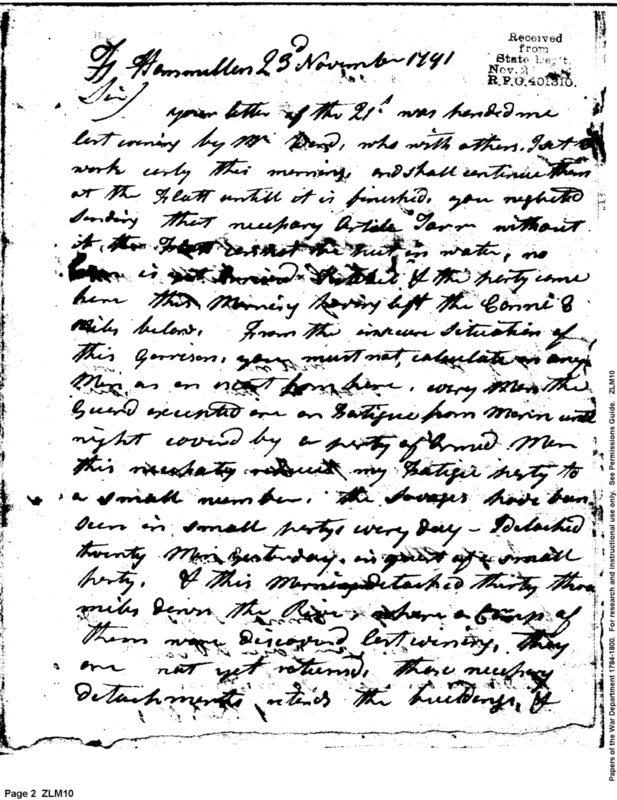 Ft Hammilton 23d November 1791
Received
from
State Dep't.
Nov. 2
R.P.O. 401310.
Sir
your letter of the 21st was handed me
last evening by Mr Ward, who with others. I set to
work early this morning, and shall continue them
at the Flatt untill it is finished. you neglected
sending that necessary Article Tarr without
it the Flatt cannot be put in water, no
is & the party came
here this Morning having left the 8
Miles below. From the insecure Situation of
this Garrison, you must not, calculate on any
Men as an escort from here, every Man the
Guard excepted are on Fatigue from Morn until
night coverd by a party of Armed Men
this my Fatigue party to
a small number. the Savages have been
seen in small partys every day – I detached
twenty Men yesterday, in quest of a small
party, & this Morning detached thirty three
miles down the River, where a Camp of
them were discovered last evening, they
are not yet returned, these necessary
detachments retards the buildings, &
Papers of the War Department 1784-1800. For research and instructional use only. See Permissions Guide. ZLM10
Page 2 ZLM10